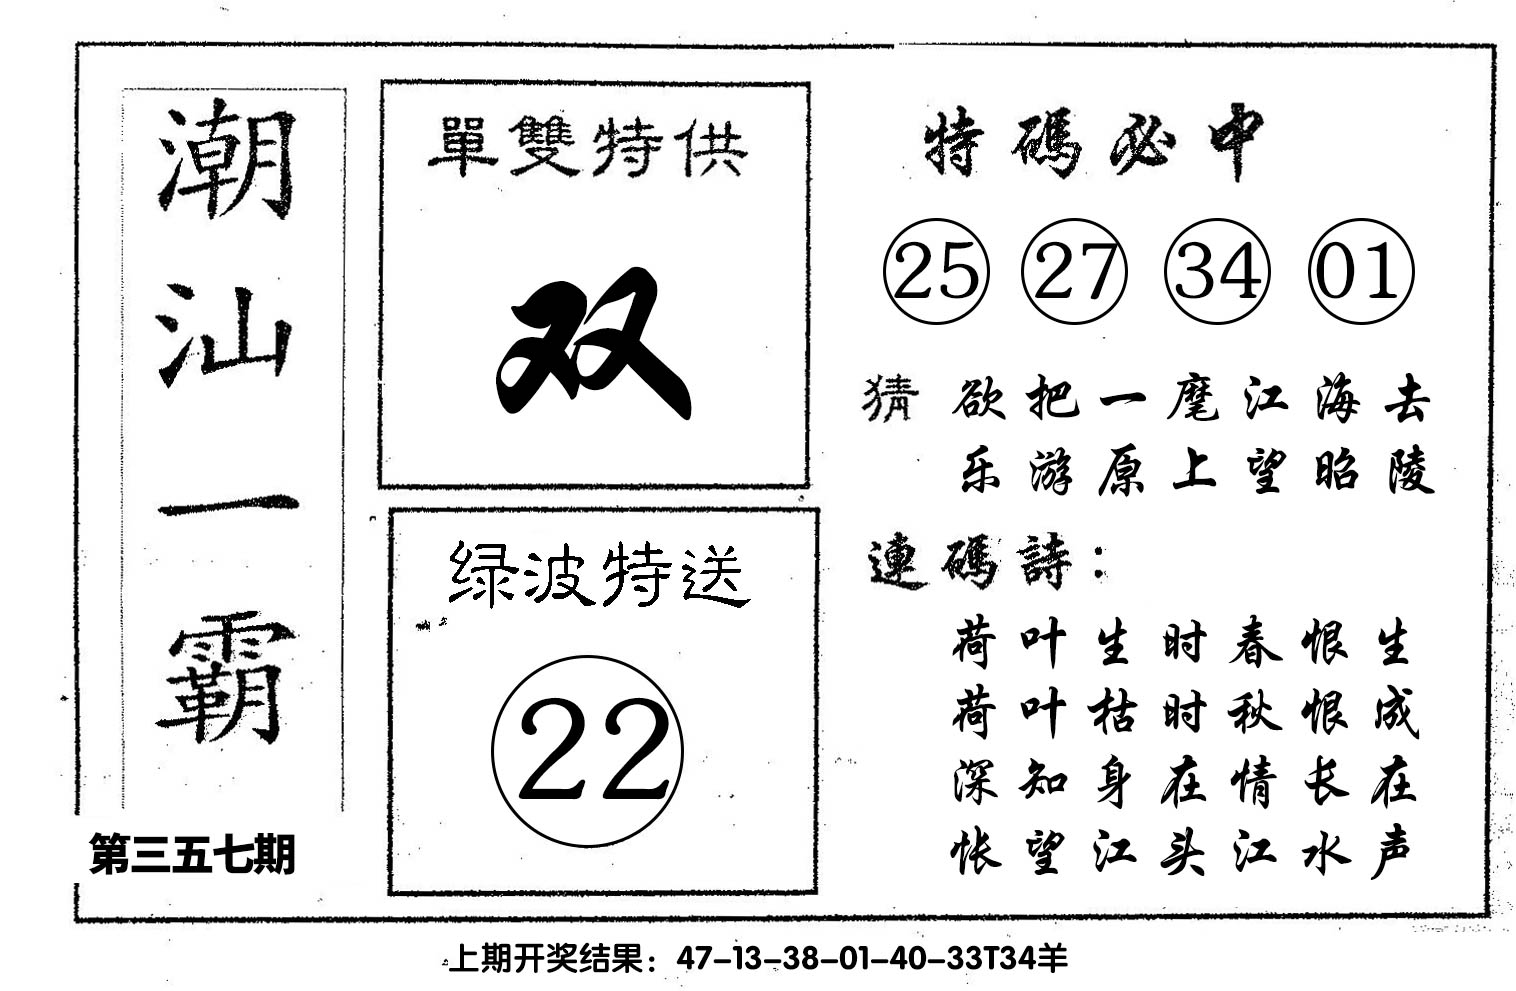 潮汕一霸
第三五七期
單雙特供
双
绿波特送
22
特碼必中
25 27 34 01
猜 欲把一麾江海去
乐游原上望昭陵
連碼詩：
荷叶生时春恨生
荷叶枯时秋恨成
深知身在情长在
怅望江头江水声
上期开奖结果：47-13-38-01-40-33T34羊